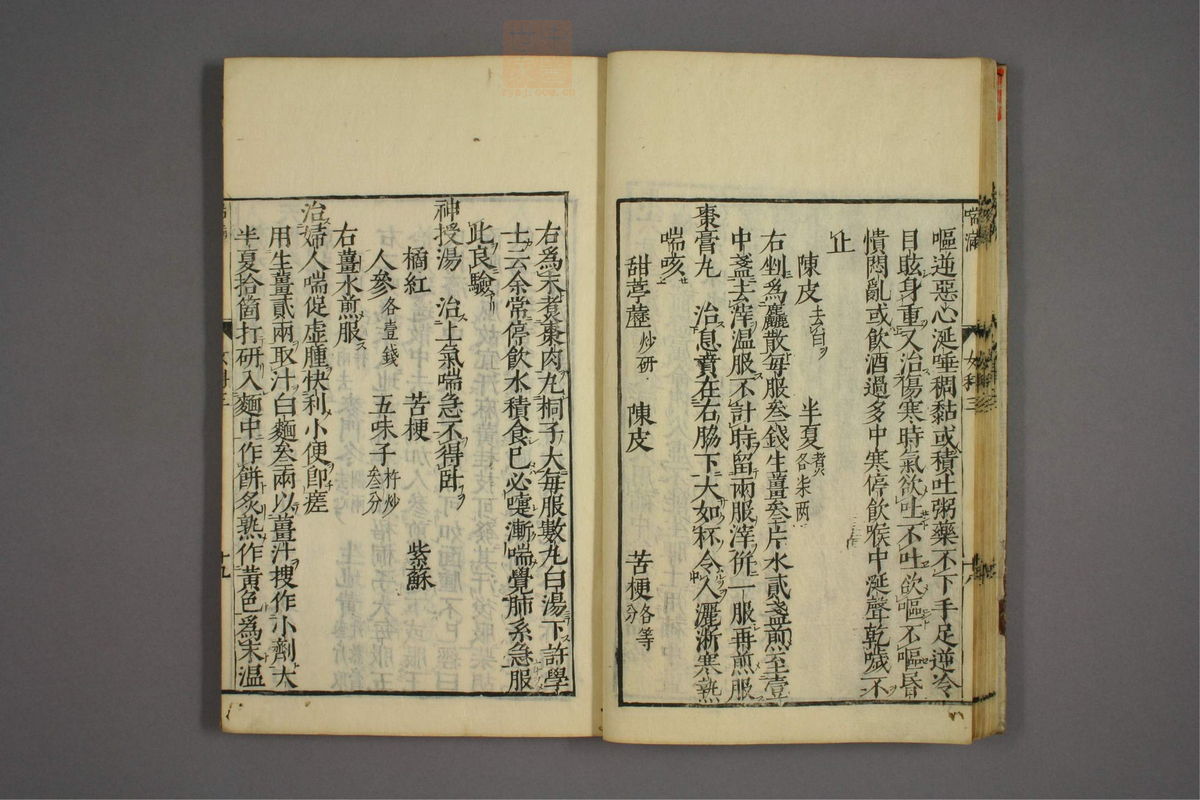 嘔逆惡心涎唾稠黏或積吐粥藥不下手足逆冷
目眩身重又治傷寒時氣欲吐不吐欲嘔不嘔昏
憒悶亂或飲酒過多中寒停飲喉中涎聲乾噦不
止
陳皮去白 半夏煮各柒兩
右剉為麤散每服叁錢生薑叁片水貳盞煎至壹
中盞去滓温服不計時留兩服滓併一服再煎服
棗膏丸 治息賁在右脇下大如杯令人灑淅寒熱
喘咳
甜葶藶炒研 陳皮 苦梗各等分
喘滿
女科三
十九
右為末煮棗肉丸梧子大每服數丸白湯下許學
士云余常停飲水積食已必嚏漸喘覺肺系急服
此良驗
神授湯 治上氣喘急不得臥
橘紅 苦梗 紫蘇
人參各壹錢 五味子杵炒叁分
右薑水煎服
治婦人喘促虛腫快利小便即瘥
用生薑貳兩取汁白麵叁兩以薑汁搜作小劑大
半夏拾箇打研入麵中作餅炙熟作黃色為末温